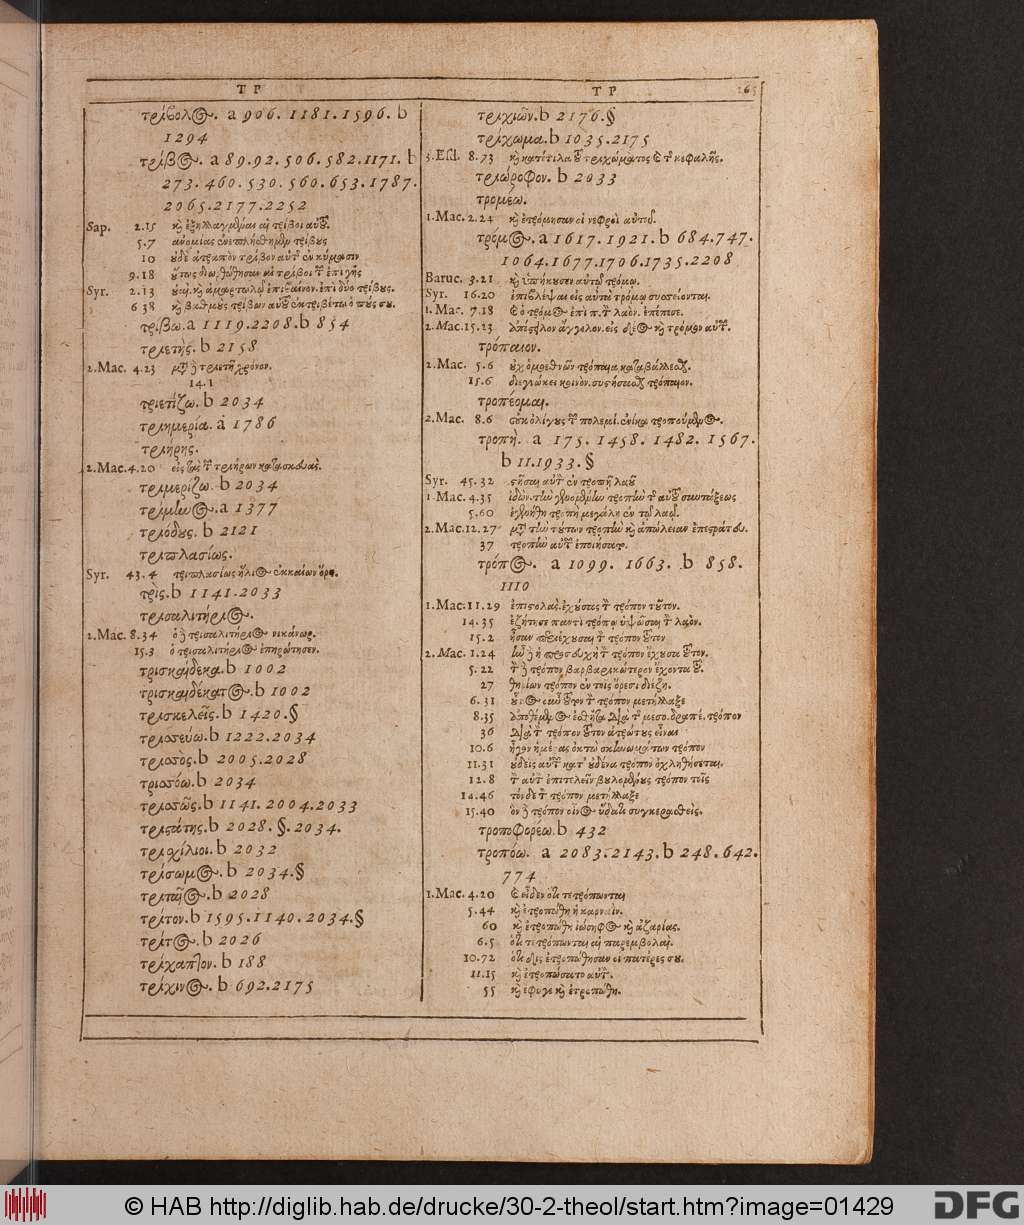 ΤΡ
τρίβολος. a 906. 1181. 1596. b
1294
τρίβος. a 89.92. 506. 582. 1171. b
273. 460. 530. 560. 653. 1787.
2065. 2177. 2252
Sap. 2.15 καὶ ἐξηλλαγμέναι αἱ τρίβοι αὐτοῦ.
5.7 ἀνομίας ἐνεπλήσθημεν τρίβοις
10 οὐδὲ ἀτραπὸν τρίβον αὐτῆς ἐν κύμασιν
9.18 οὕτως διωρθώθησαν αἱ τρίβοι τῶν ἐπὶ γῆς
Syr. 2.13 ἐπὶ δύο τρίβους.
6 38 καὶ βαθμοὺς τρίβων αὐτοῦ ἐκτριβέτω ὁ πούς σου.
τρίβω. a 1119. 2208. b 854
τριετὴς. b 2158
2.Mac. 4.23 μετὰ δὲ τριετῆ χρόνον.
14.1
τριετίζω. b 2034
τριημερία. a 1786
τριήρης.
2.Mac. 4.20 εἰς τὰς τῶν τριήρων κατασκευὰς.
τριμερίζω. b 2034
τρίμηνος. a 1377
τριόδους. b 2121
τριπλασίως.
Syr. 43.4 τριπλασίως ἥλιος ἐκκαίων ὄρη.
τρὶς. b 1141. 2033
τρισαλιτήριος.
2.Mac. 8.34 ὁ δὲ τρισαλιτήριος νικάνωρ.
15.3 ὁ τρισαλιτήριος ἐπηρώτησεν.
τρισκαίδεκα. b 1002
τρισκαιδέκατος. b 1002
τρισκελεῖς. b 1420. §
τρισσεύω. b 1222. 2034
τρισσὸς. b 2005. 2028
τρισσόω. b 2034
τρισσῶς. b 1141. 2004. 2033
τριστάτης. b 2028. §. 2034.
τρισχίλιοι. b 2032
τρίσωμος. b 2034. §
b 2028
τρίτον. b 1595. 1140. 2034. §
τρίτος. b 2026
τρίχαπτον. b 188
τρίχινος. b 692. 2175
ΤΡ
265
τριχιῶν. b 2176. §
τρίχωμα. b 1035. 2175
3.Esd. 8.73 καὶ κατέτιλα τοῦ τριχώματος τῆς κεφαλῆς.
τριώροφον. b 2033
τρομέω.
1.Mac. 2.24 καὶ ἐτρόμησαν οἱ νεφροὶ αὐτοῦ.
τρόμος. a 1617. 1921. b 684. 747.
1064. 1677. 1706. 1735. 2208
Baruc. 3.21 καὶ ὑπήκουσεν αὐτῷ τρόμῳ.
Syr. 16.20 ἐπιβλέψαι εἰς αὐτὰ τρόμῳ συσσείονται.
1.Mac. 7.18 ὁ τρόμος ἐπὶ π. τὸν λαὸν. ἐπέπεσε.
2.Mac. 15.23 ἀπόστειλον ἄγγελον. εἰς δέος καὶ τρόμον αὐτοῖς.
τρόπαιον.
2.Mac. 5.6 οὐχ ὁμοεθνῶν τρόπαια καταβάλλεσθαι
15.6 διεγνώκει κοινὸν. συστήσασθαι τρόπαιον.
τροπέομαι.
2.Mac. 8.6 οὐκ ὀλίγους τῶν πολεμί. ἐνίκα τροπούμενος.
τροπὴ. a 175. 1458. 1482. 1567.
b 11. 1933. §
Syr. 45.32 στῆσαι αὐτὸν ἐν τροπῇ λαοῦ
1.Mac. 4.35 ἰδὼν. τὴν γενομένην τροπὴν τῆς αὐτοῦ συντάξεως
5.60 ἐγενήθη τροπὴ μεγάλη ἐν τῷ λαῷ.
2.Mac. 12.27 μετὰ τὴν τούτων τροπὴν καὶ ἀπώλειαν ἐπεστράτευ.
37 τροπὴν αὐτῶν ἐποιήσατο.
τρόπος. a 1099. 1663. b 858.
1110
1.Mac. 11.29 ἐπιστολὰς. ἐχούσας τὸν τρόπον τοῦτον.
14.35 ἐζήτησε παντὶ τρόπῳ ὑψῶσαι τὸν λαὸν.
15.2 ἦσαν περιέχουσαι τὸν τρόπον τοῦτον
2.Mac. 1.24 ἦν δὲ ἡ προσευχὴ τὸν τρόπον ἔχουσα τοῦτον.
5.22 τὸν δὲ τρόπον βαρβαρικώτερον ἔχοντα τοῦ.
27 θηρίων τρόπον ἐν τοῖς ὄρεσι διέζη.
6.31 οὗτος οὖν τοῦτον τὸν τρόπον μετήλλαξε
8.35 ἀποθέμενος ἐσθῆτα διὰ τῆς μεσο. δραπέ. τρόπον
36 διὰ τὸν τρόπον τοῦτον ἀτρώτους εἶναι
10.6 ἦγον ἡμέρας ὀκτὼ σκηνωμάτων τρόπον
11.31 οὐδεὶς αὐτῶν κατ' οὐδένα τρόπον ὀχληθήσεται.
12.8 τὸν αὐτὸν ἐπιτελεῖν βουλομένους τρόπον τοῖς
14.46 τόνδε τὸν τρόπον μετήλλαξε
15.40 ὃν δὲ τρόπον οἶνος ὕδατι συγκερασθεὶς.
τροποφορέω. b 432
τροπόω. a 2083. 2143. b 248. 642.
774
1.Mac. 4.20 εἶδεν ὅτι τετρόπωνται
5.44 καὶ ἐτροπώθη ἡ καρναΐν.
60 καὶ ἐτροπώθη ἰώσηφος καὶ ἀζαρίας.
6.5 ὅτι τετρόπωνται αἱ παρεμβολαὶ.
10.72 ὅτι δὶς ἐτροπώθησαν οἱ πατέρες σου.
11.15 καὶ ἐτροπώσατο αὐτὸν.
55 καὶ ἔφυγε καὶ ἐτροπώθη.
© HAB http://diglib.hab.de/drucke/30-2-theol/start.htm?image=01429
DFG